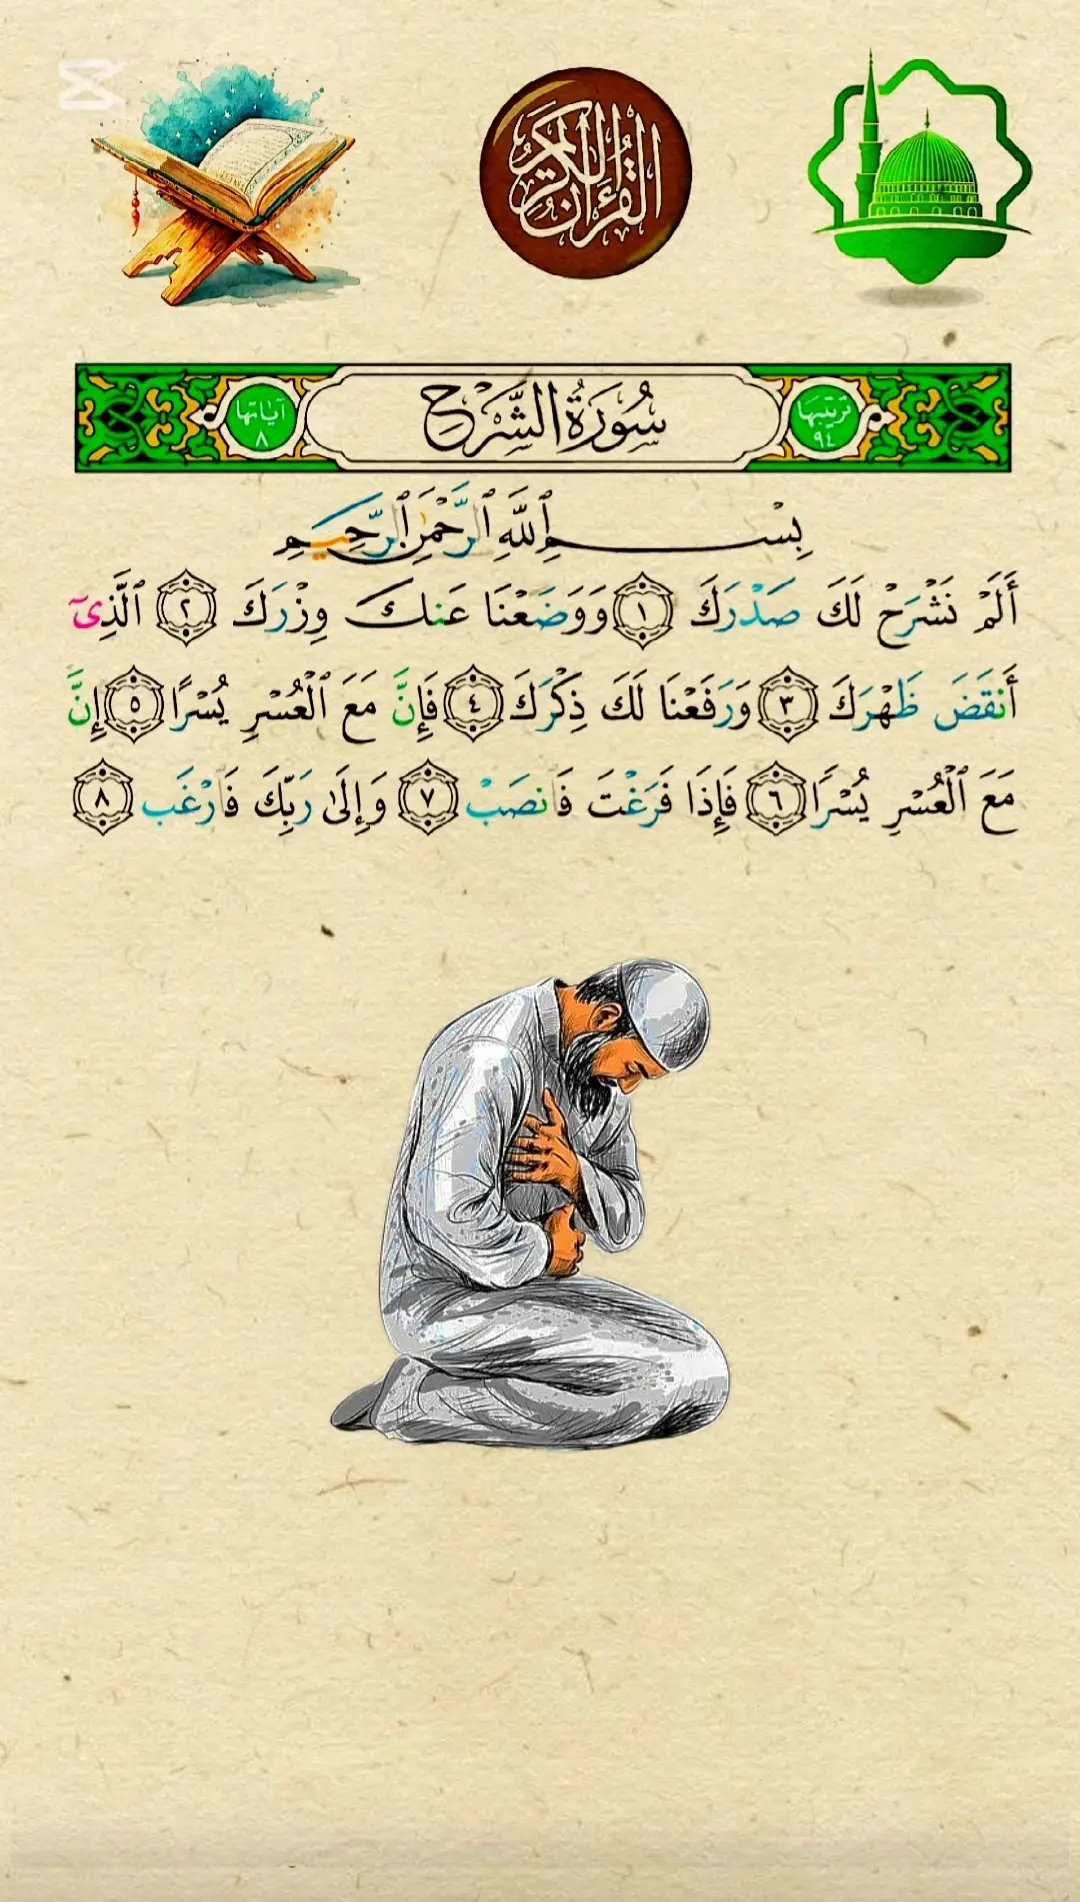 القرءان الكريم
سُورَةُ الشَّرْحِ
ترتيبها
٩٤
آياتها
٨
بِسْمِ ٱللَّهِ ٱلرَّحْمَٰنِ ٱلرَّحِيمِ
أَلَمْ نَشْرَحْ لَكَ صَدْرَكَ ١ وَوَضَعْنَا عَنكَ وِزْرَكَ ٢ ٱلَّذِىٓ
أَنقَضَ ظَهْرَكَ ٣ وَرَفَعْنَا لَكَ ذِكْرَكَ ٤ فَإِنَّ مَعَ ٱلْعُسْرِ يُسْرًا ٥ إِنَّ
مَعَ ٱلْعُسْرِ يُسْرًا ٦ فَإِذَا فَرَغْتَ فَٱنصَبْ ٧ وَإِلَىٰ رَبِّكَ فَٱرْغَب ٨